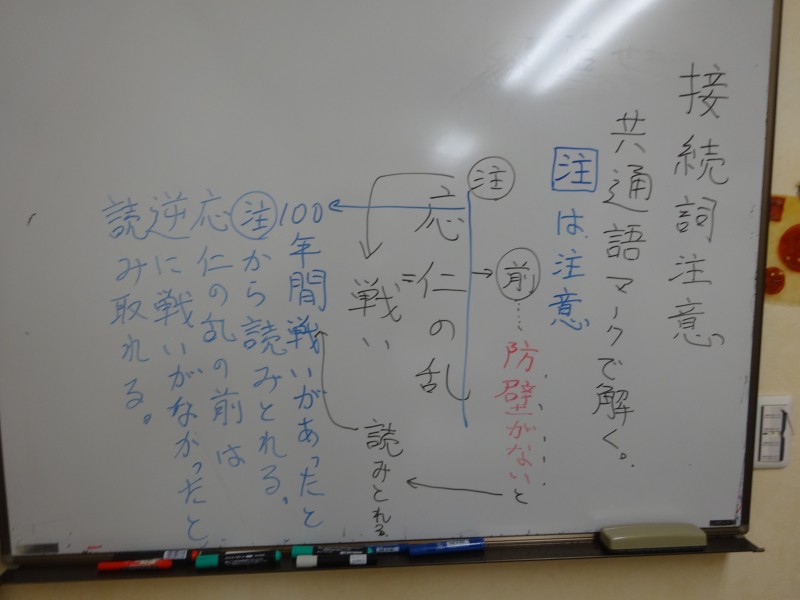 接続詞注意
共通語マークで解く。
注は注意
前……防壁がないと
注
応仁の乱
＝
戦い
読みとれる
100年間戦いがあったと
注から読みとれる。
応仁の乱の前は
逆に戦いがなかったと
読み取れる。